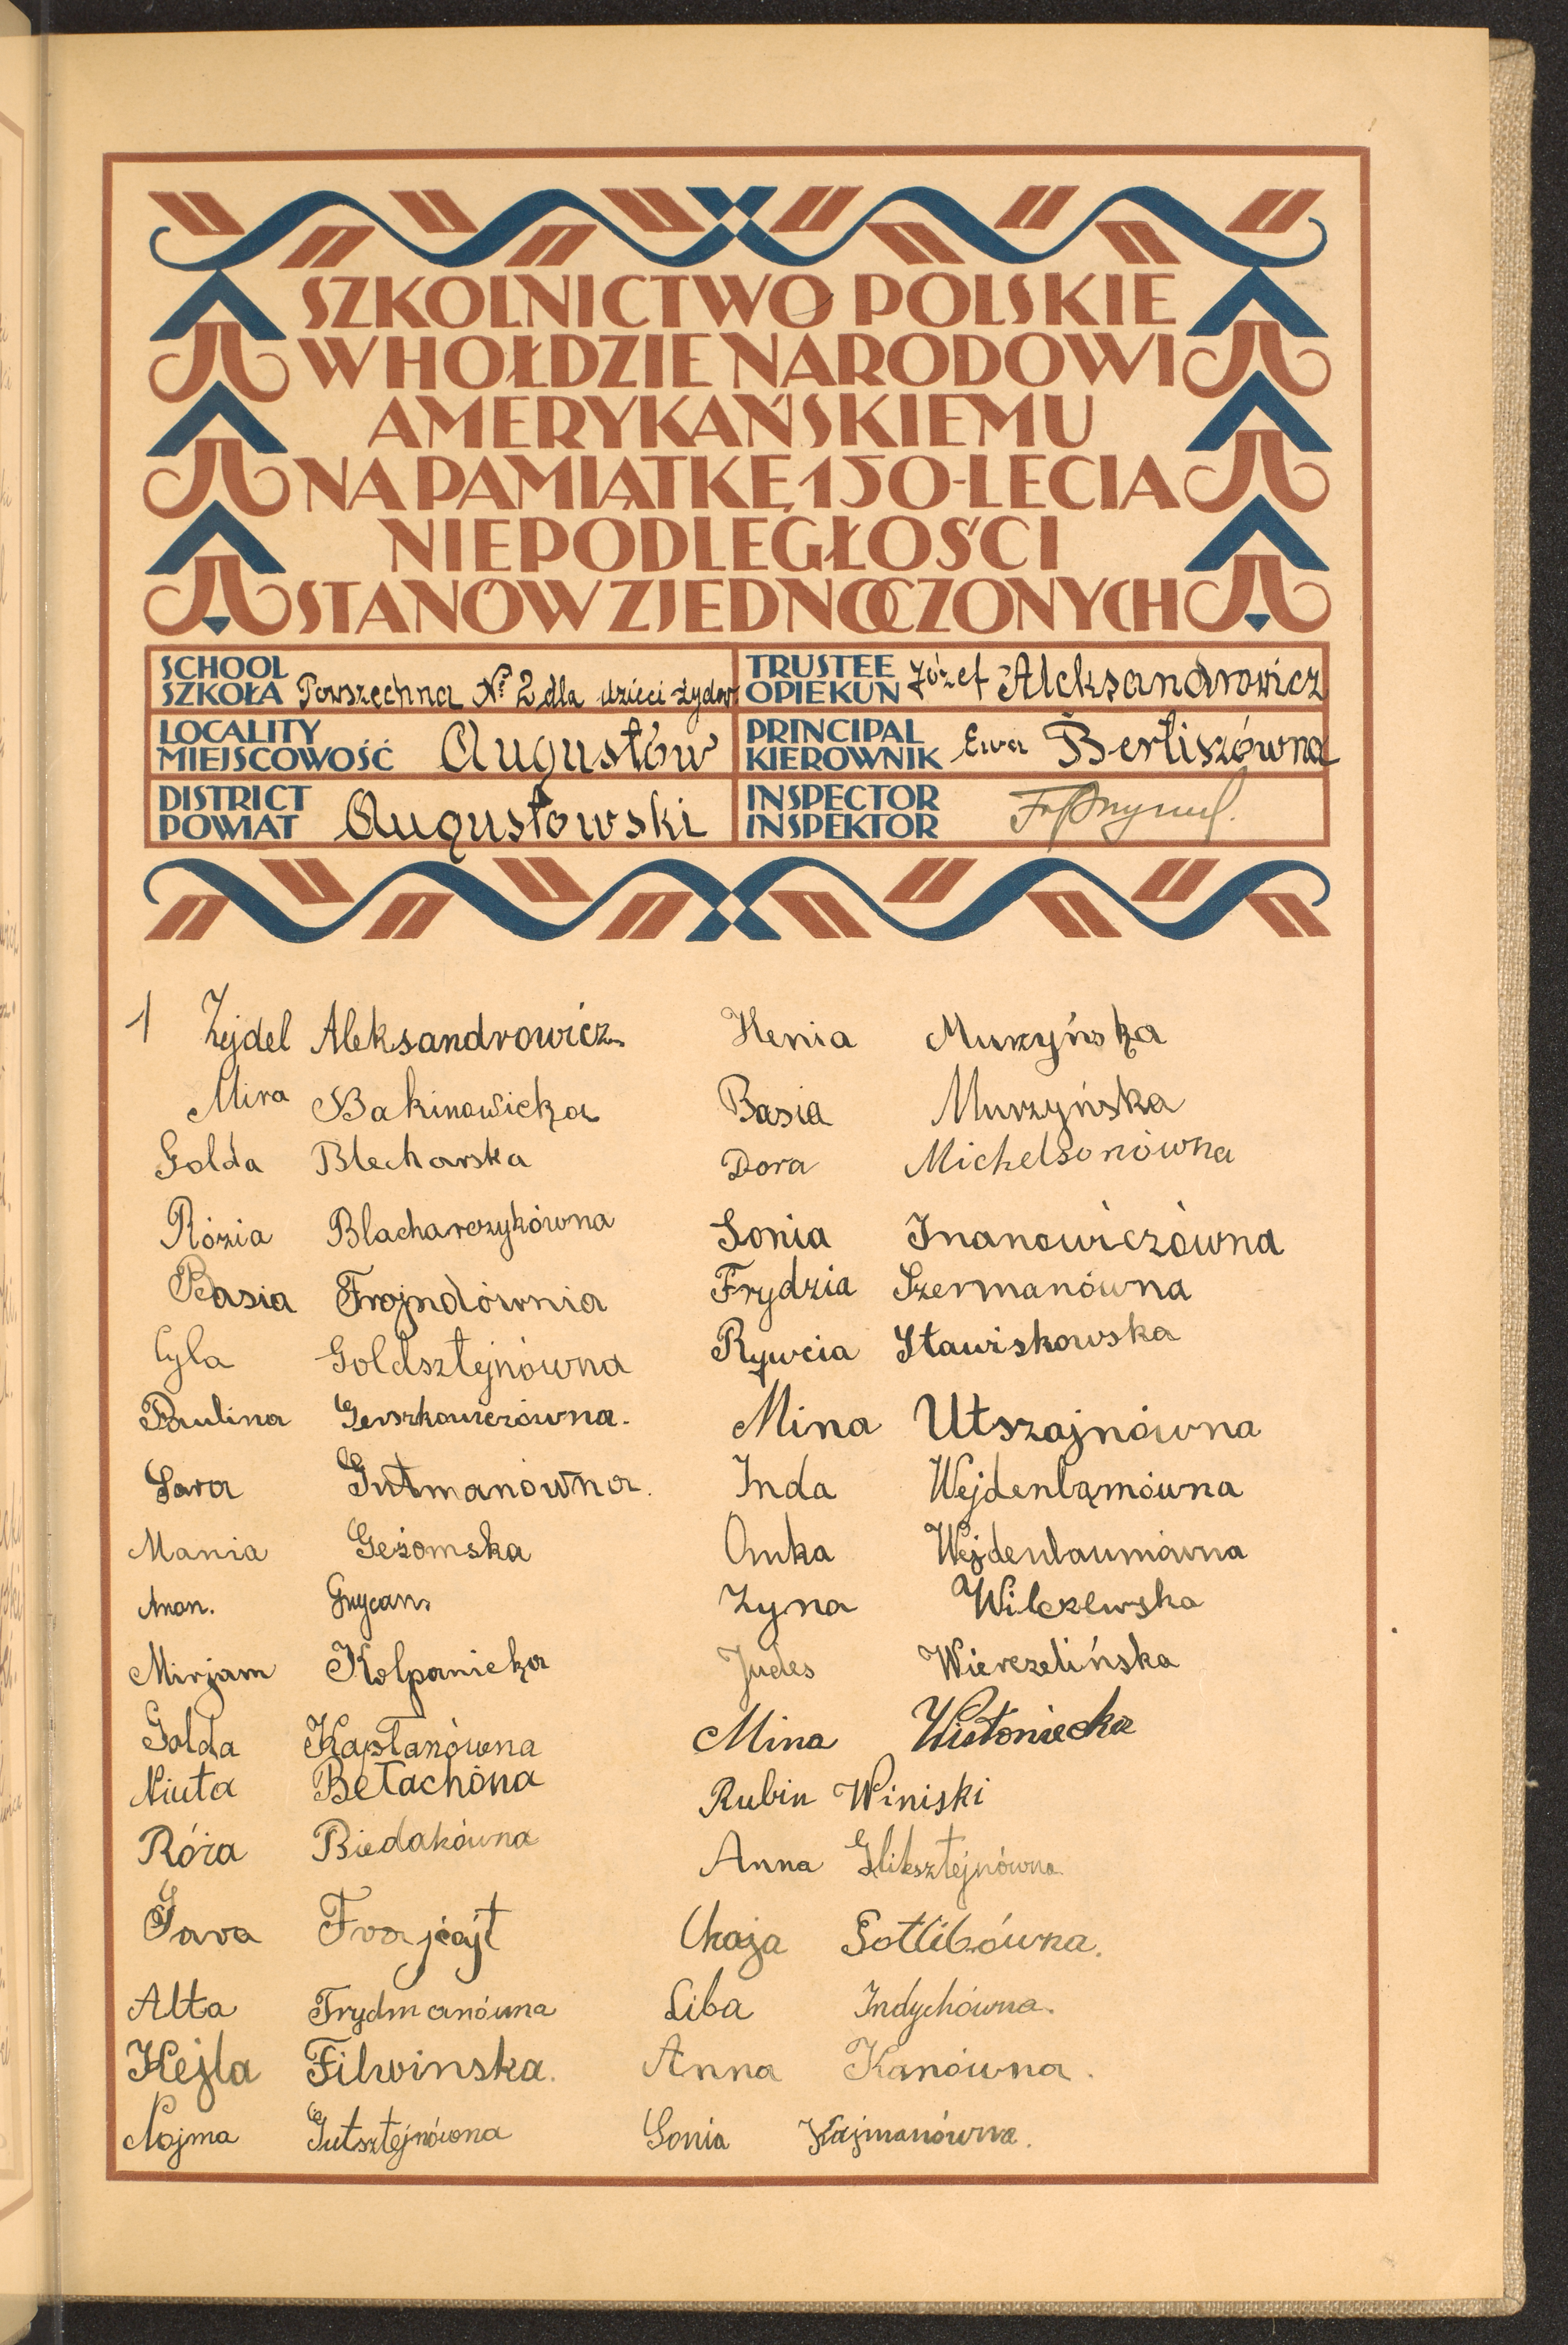 SZKOLNICTWO POLSKIE
W HOŁDZIE NARODOWI
AMERYKAŃSKIEMU
NA PAMIĄTKĘ 150-LECIA
NIEPODLEGŁOŚCI
STANÓW ZJEDNOCZONYCH
SCHOOL
SZKOŁA Powszechna № 2 dla dzieci żydow
TRUSTEE
OPIEKUN Józef Aleksandrowicz
LOCALITY
MIEJSCOWOŚĆ Augustów
PRINCIPAL
KIEROWNIK Ewa Berliszówna
DISTRICT
POWIAT Augustowski
INSPECTOR
INSPEKTOR
1 Zejdel Aleksandrowicz
Mira Bakinowicka
Golda Blecharska
Rózia Blacharczykówna
Basia Frojndównia
Cyla Goldsztejnówna
Paulina Gerszkowiczówna.
Sara Gutmanówna.
Mania Geżomska
Anon. Grycan.
Mirjam Kolpanicka
Golda Kapłanówna
Niuta Bełachóna
Róża Biedakówna
Sara Frajcajt
Alta Frydmanówna
Hejla Filwinska.
Nojma Gutsztejnówona
Henia Murzyńska
Basia Murzyńska
Dora Michelsonówna
Sonia Inanowiczówna
Frydzia Szermanówna
Rywcia Stawiskowska
Mina Utszajnówna
Inda Wejdenbąmówna
Anka Wejdenbaumówna
Zyna Wilczewska
Judes Wierzelińska
Mina Wistoniecka
Rubin Winiski
Anna Gliksztejnówna
Chaja Gotlibówna.
Liba Indychówna.
Anna Kanówna.
Sonia Kajmanówna.